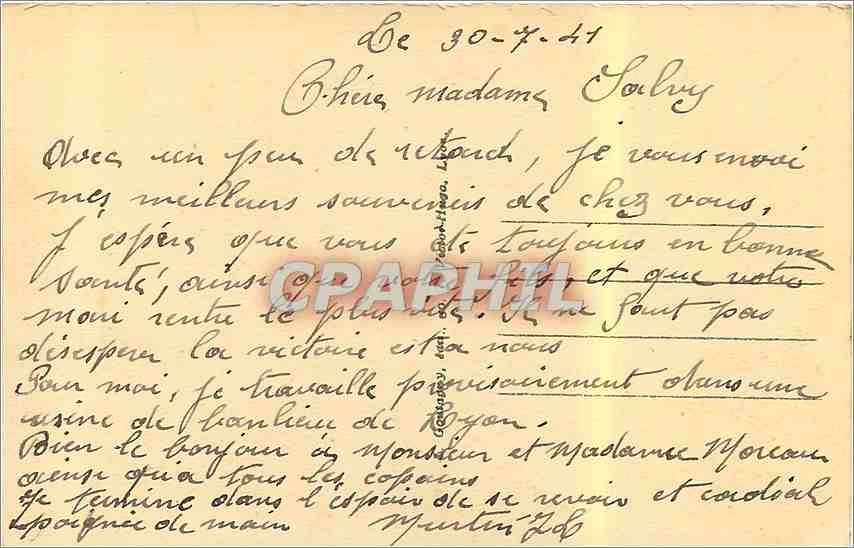 Le 30-7-41
Chère madame Salvy
Avec un peu de retard, je vous envoi
mes meilleurs souvenirs de chez vous.
J'espère que vous ete toujours en bonne
santé, ainsi que votre fils, et que votre
mari rentre le plus vite. Il ne faut pas
désesperer la victoire est a nous
Pour moi, je travaille provisoirement dans une
usine de banlieu de Lyon.
Bien le bonjour à Monsieur et Madame Moreau
ainsi qu'a tous les copains
Je termine dans l'espoir de se revoir et cordiale
poignée de main Martin
Goutagny, 20, Victor-Hugo, Lyon.
CPAPHIL